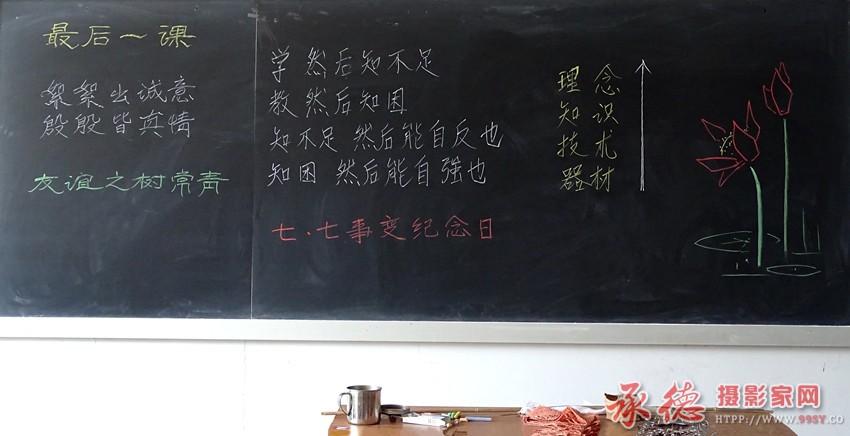 最后一课
絮絮出诚意
殷殷皆真情
友谊之树常青
学然后知不足
教然后知困
知不足 然后能自反也
知困 然后能自强也
七.七事变纪念日
理念
知识
技术
器材
承德摄影家网
HTTP://WWW.99SY.CO